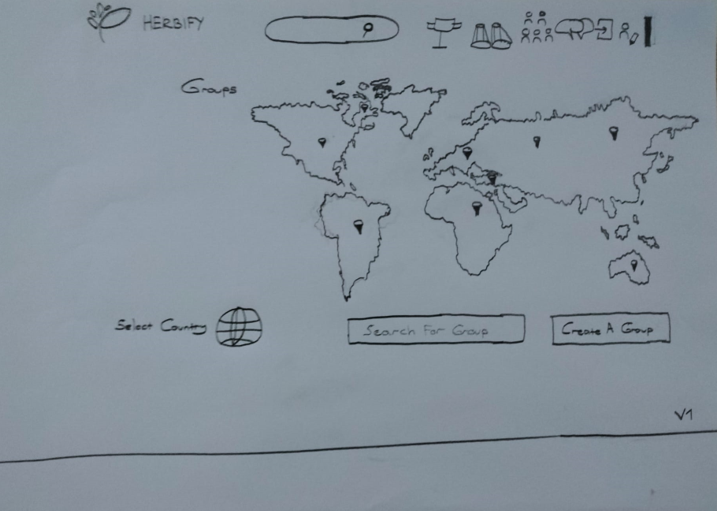 HERBIFY
Groups
Select Country
Search For Group
Create A Group
V1